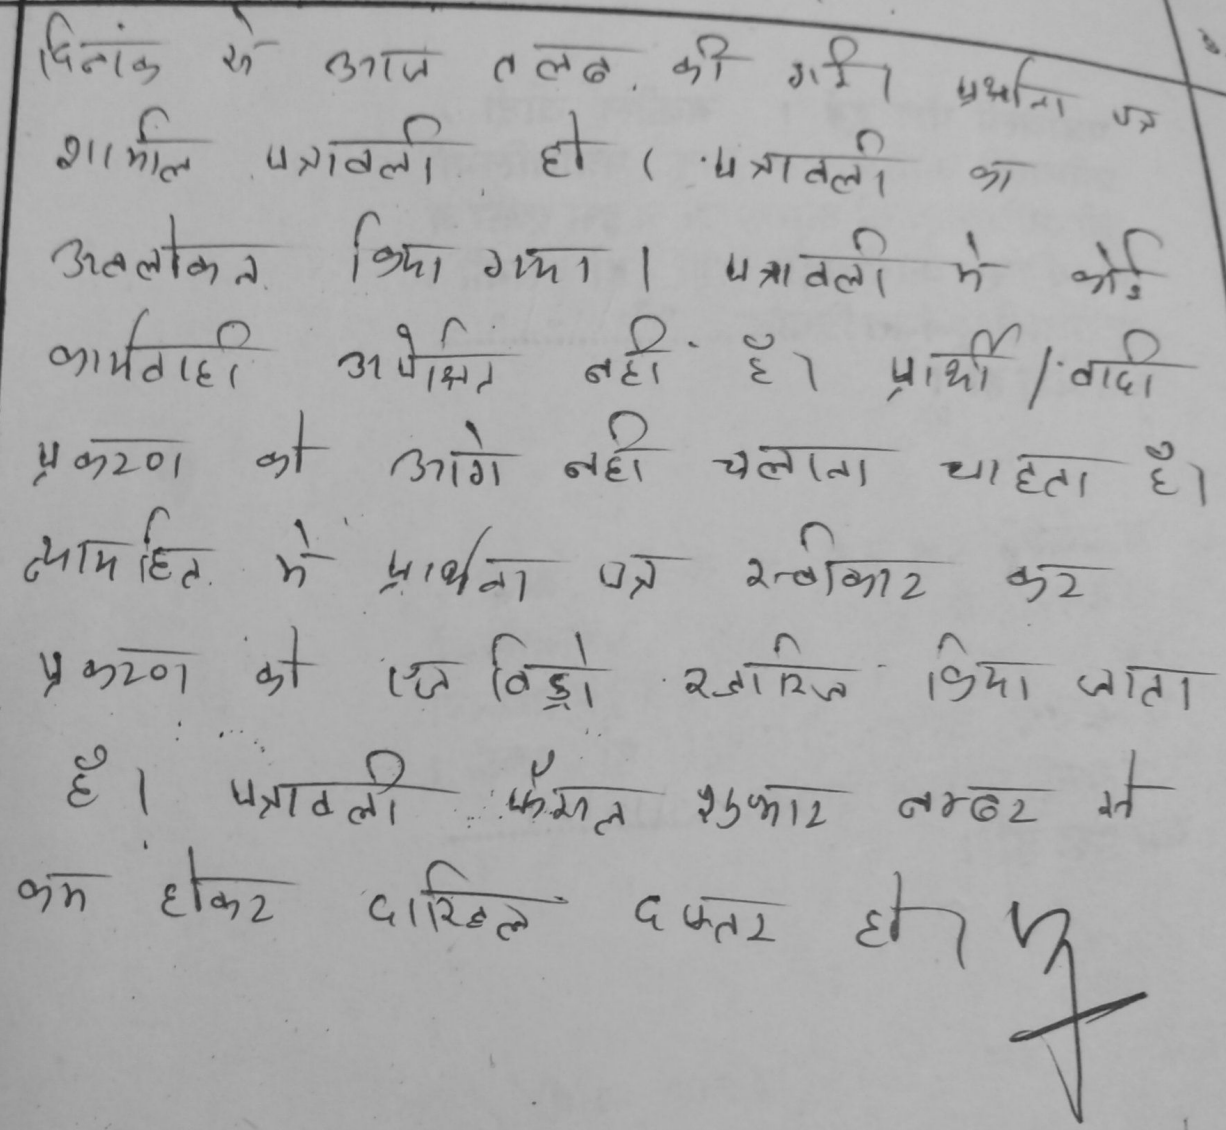 दिनांक से आज तलब की गई। प्रार्थना पत्र
शामील पत्रावली हो। पत्रावली का
अवलोकन किया गया। पत्रावली मे कोई
कार्यवाही अपेक्षित नही है। प्रार्थी/वादी
प्रकरण को आगे नही चलाना चाहता है।
न्यायहित मे प्रार्थना पत्र स्वीकार कर
प्रकरण को एज विड्रो खारिज किया जाता
है। पत्रावली फैसल शुमार नम्बर से
कम होकर दाखिल दफ्तर हो।